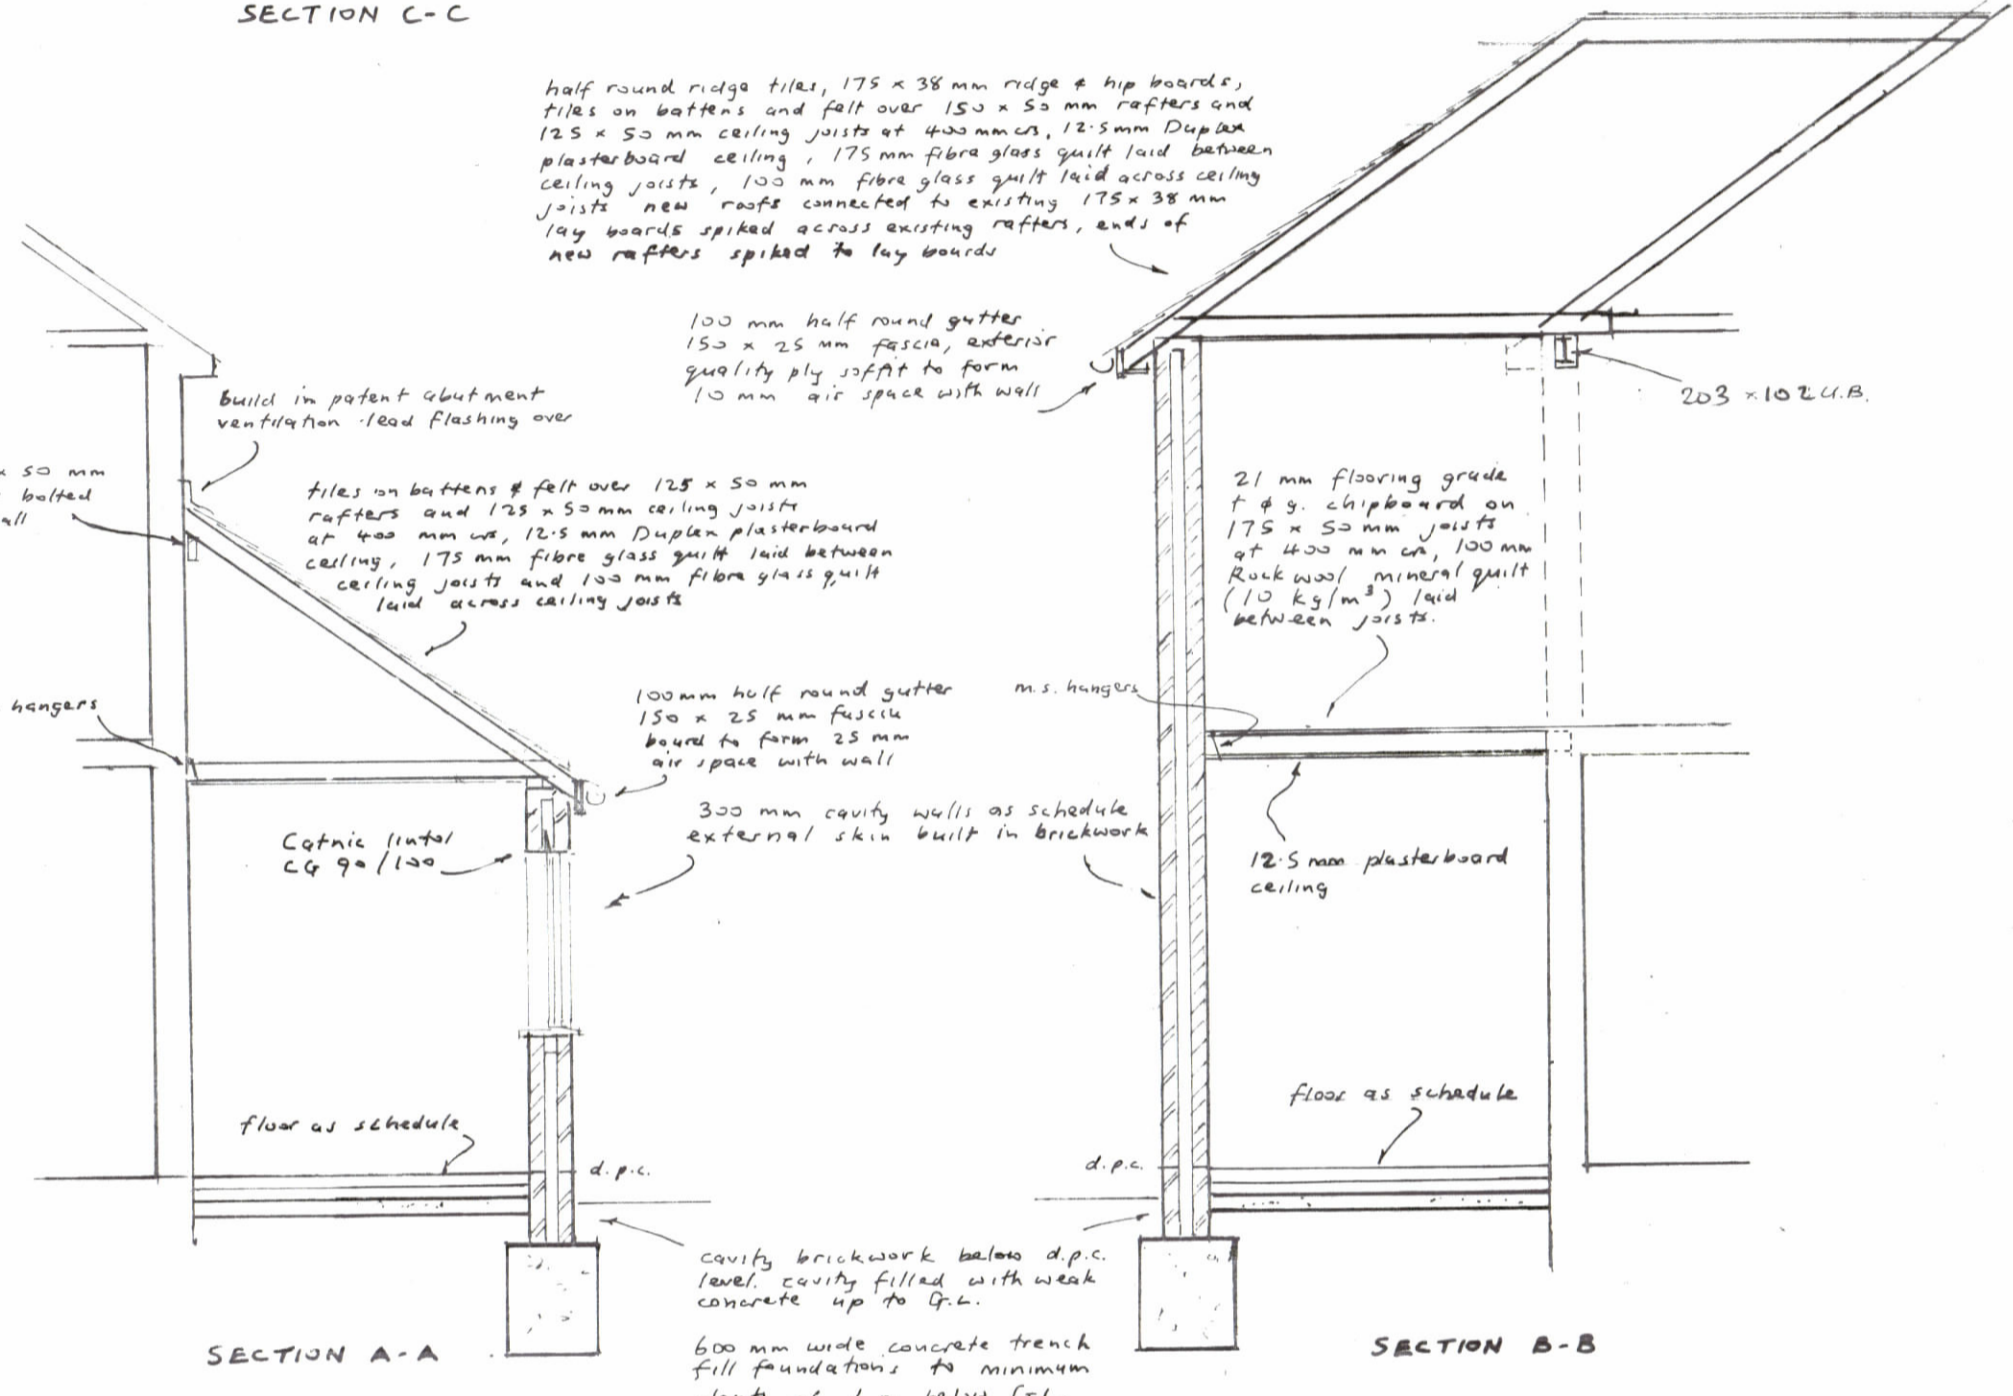 SECTION C-C
half round ridge tiles, 175 x 38 mm ridge & hip boards,
tiles on battens and felt over 150 x 50 mm rafters and
125 x 50 mm ceiling joists at 400 mm crs, 12.5mm Duplex
plasterboard ceiling, 175 mm fibre glass quilt laid between
ceiling joists, 100 mm fibre glass quilt laid across ceiling
joists new roofs connected to existing 175 x 38 mm
lay boards spiked across existing rafters, ends of
new rafters spiked to lay boards
100 mm half round gutter
150 x 25 mm fascia, exterior
quality ply soffit to form
10 mm air space with wall
203 x 102 U.B.
build in patent abutment
ventilation lead flashing over
x 50 mm
bolted
all
tiles on battens & felt over 125 x 50 mm
rafters and 125 x 50 mm ceiling joists
at 400 mm crs, 12.5 mm Duplex plasterboard
ceiling, 175 mm fibre glass quilt laid between
ceiling joists and 100 mm fibre glass quilt
laid across ceiling joists
21 mm flooring grade
t & g. chipboard on
175 x 50 mm joists
at 400 mm crs, 100 mm
Rockwool mineral quilt
(10 kg/m³) laid
between joists.
hangers
100mm half round gutter
150 x 25 mm fascia
board to form 25 mm
air space with wall
m.s. hangers
300 mm cavity walls as schedule
external skin built in brickwork
Catnic lintol
CG 90/100
12.5 mm plasterboard
ceiling
floor as schedule
d.p.c.
floor as schedule
d.p.c.
cavity brickwork below d.p.c.
level. cavity filled with weak
concrete up to G.L.
600 mm wide concrete trench
fill foundations to minimum
below G.L.
SECTION A-A
SECTION B-B